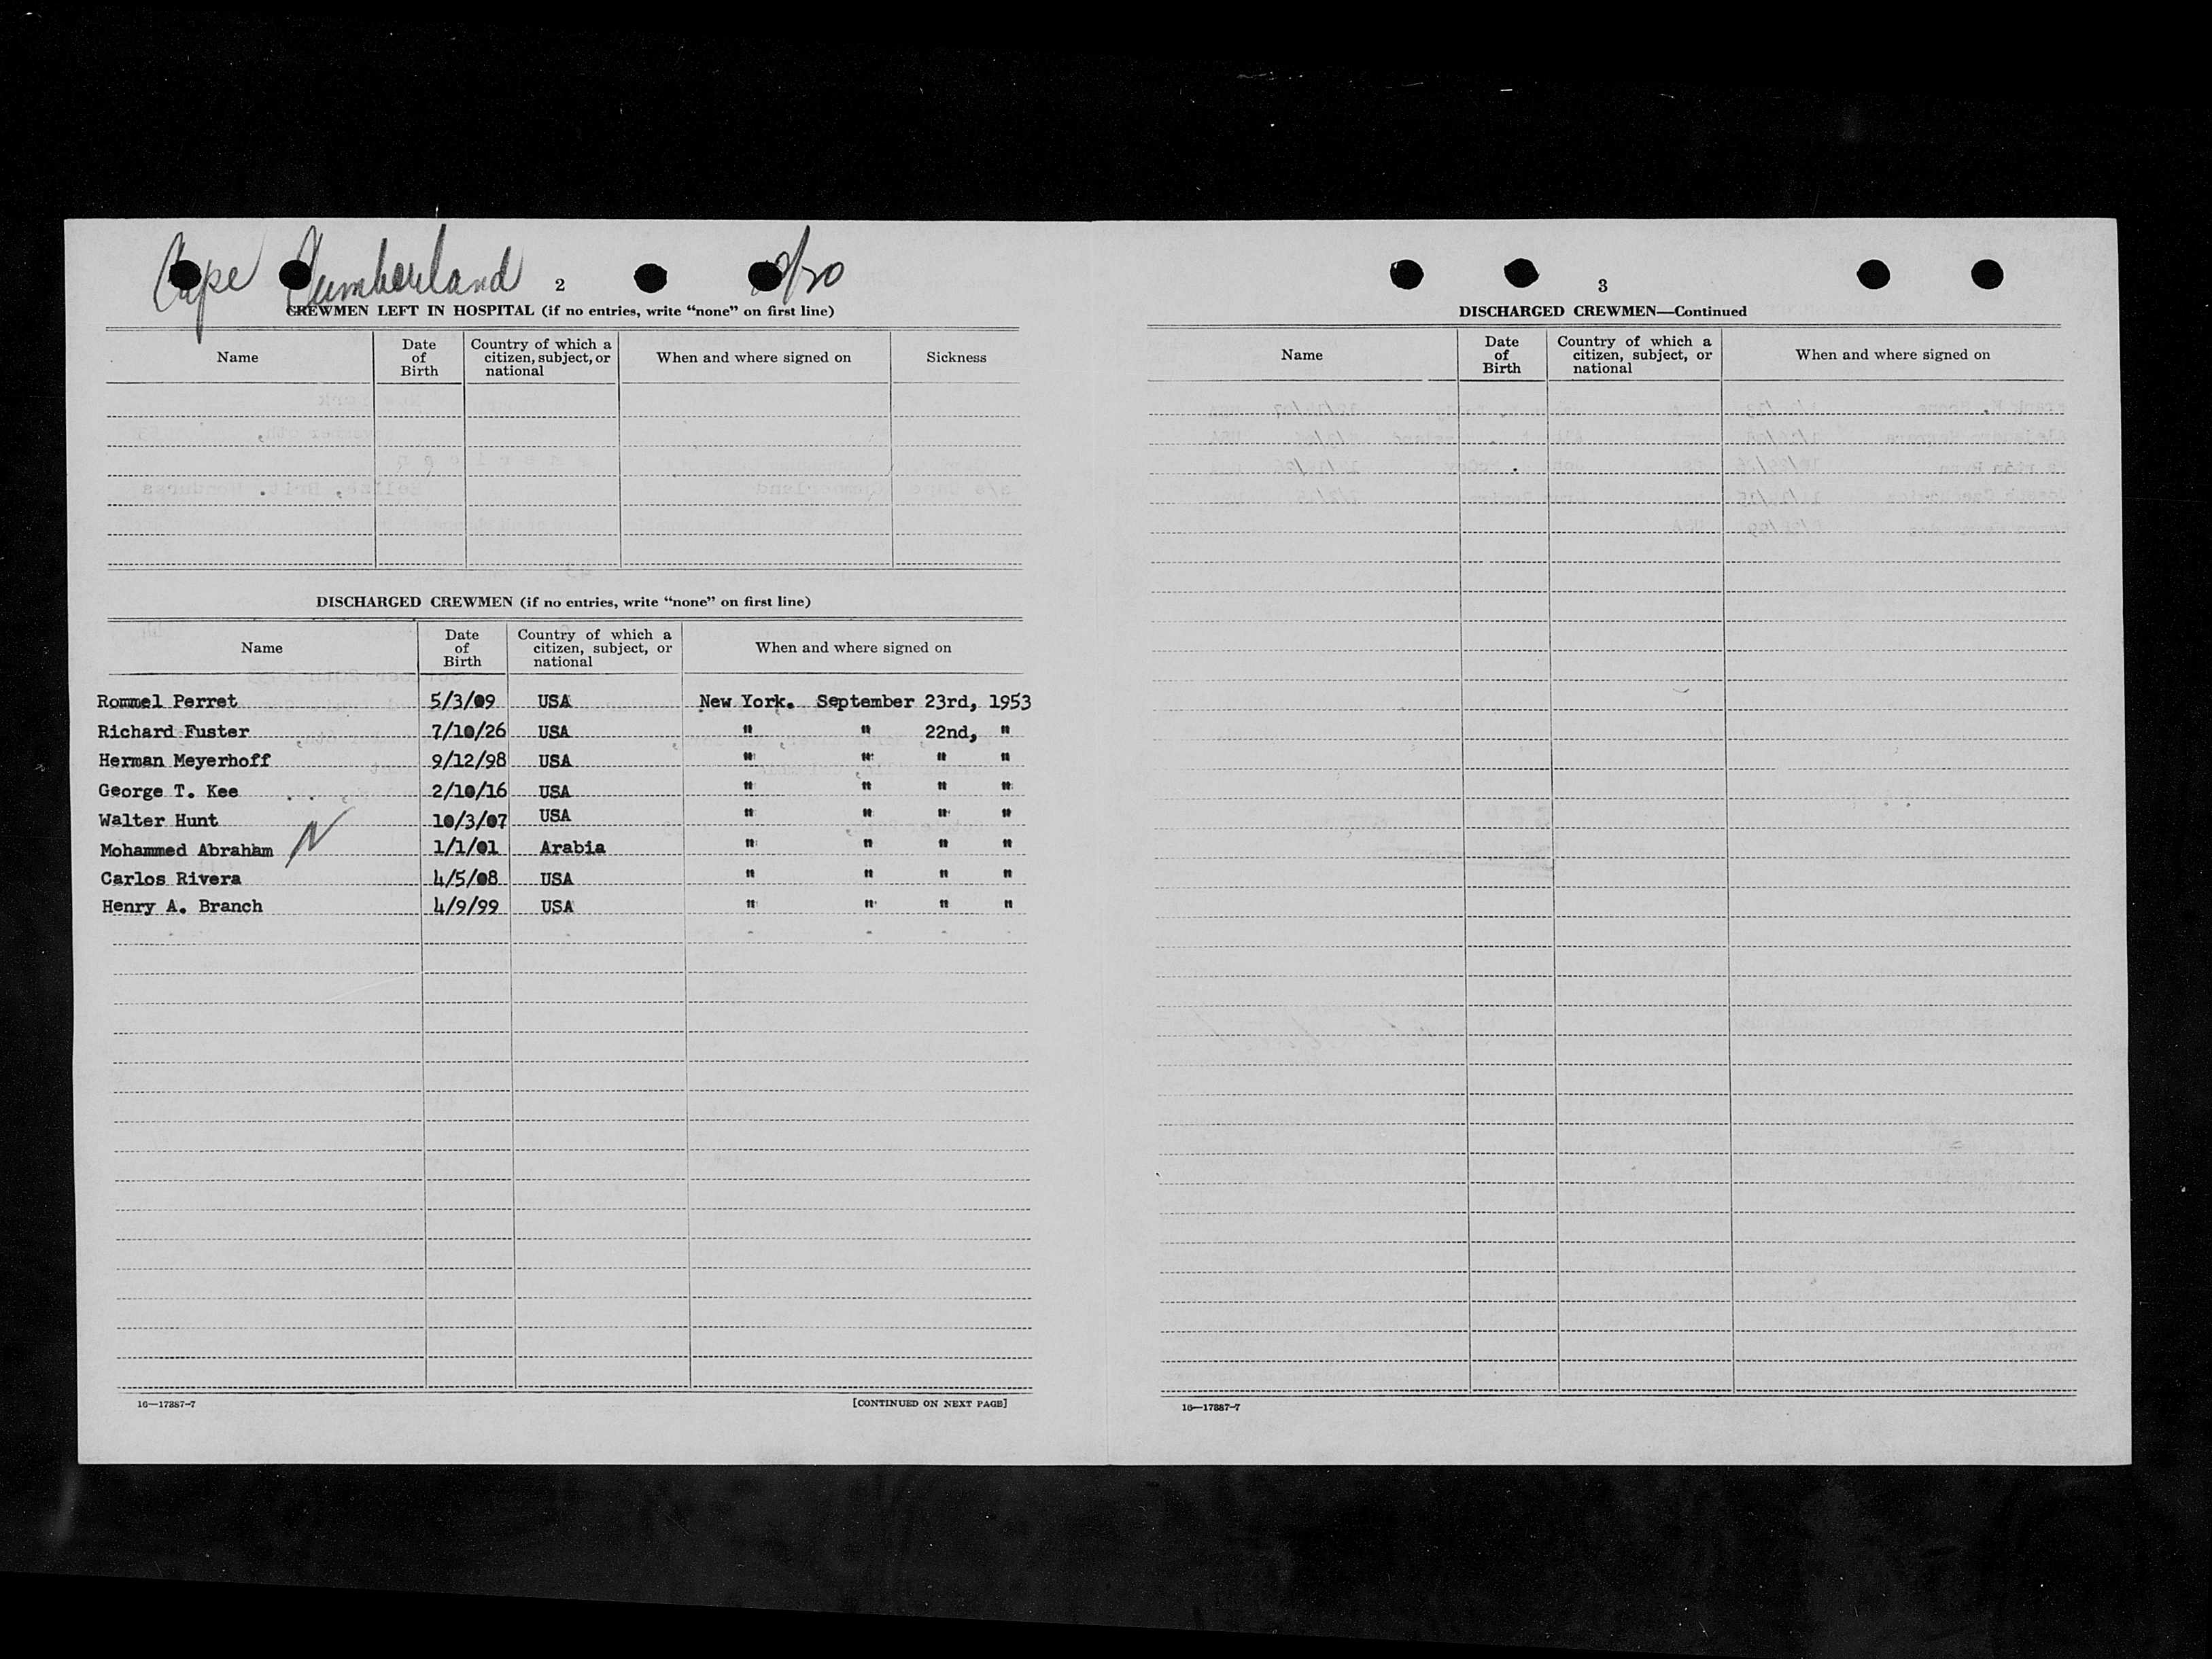 Cape Cumberland
2
CREWMEN LEFT IN HOSPITAL (if no entries, write "none" on first line)
Name
Date of Birth
Country of which a citizen, subject, or national
When and where signed on
Sickness
DISCHARGED CREWMEN (if no entries, write "none" on first line)
Name
Date of Birth
Country of which a citizen, subject, or national
When and where signed on
Rommel Perret 5/3/09 USA New York. September 23rd, 1953
Richard Fuster 7/10/26 USA " " 22nd, "
Herman Meyerhoff 9/12/98 USA " " " "
George T. Kee 2/10/16 USA " " " "
Walter Hunt 10/3/07 USA " " " "
Mohammed Abraham N 1/1/01 Arabia " " " "
Carlos Rivera 4/5/08 USA " " " "
Henry A. Branch 4/9/99 USA " " " "
16—17387-7
[CONTINUED ON NEXT PAGE]
3
DISCHARGED CREWMEN—Continued
Name
Date of Birth
Country of which a citizen, subject, or national
When and where signed on
16—17387-7